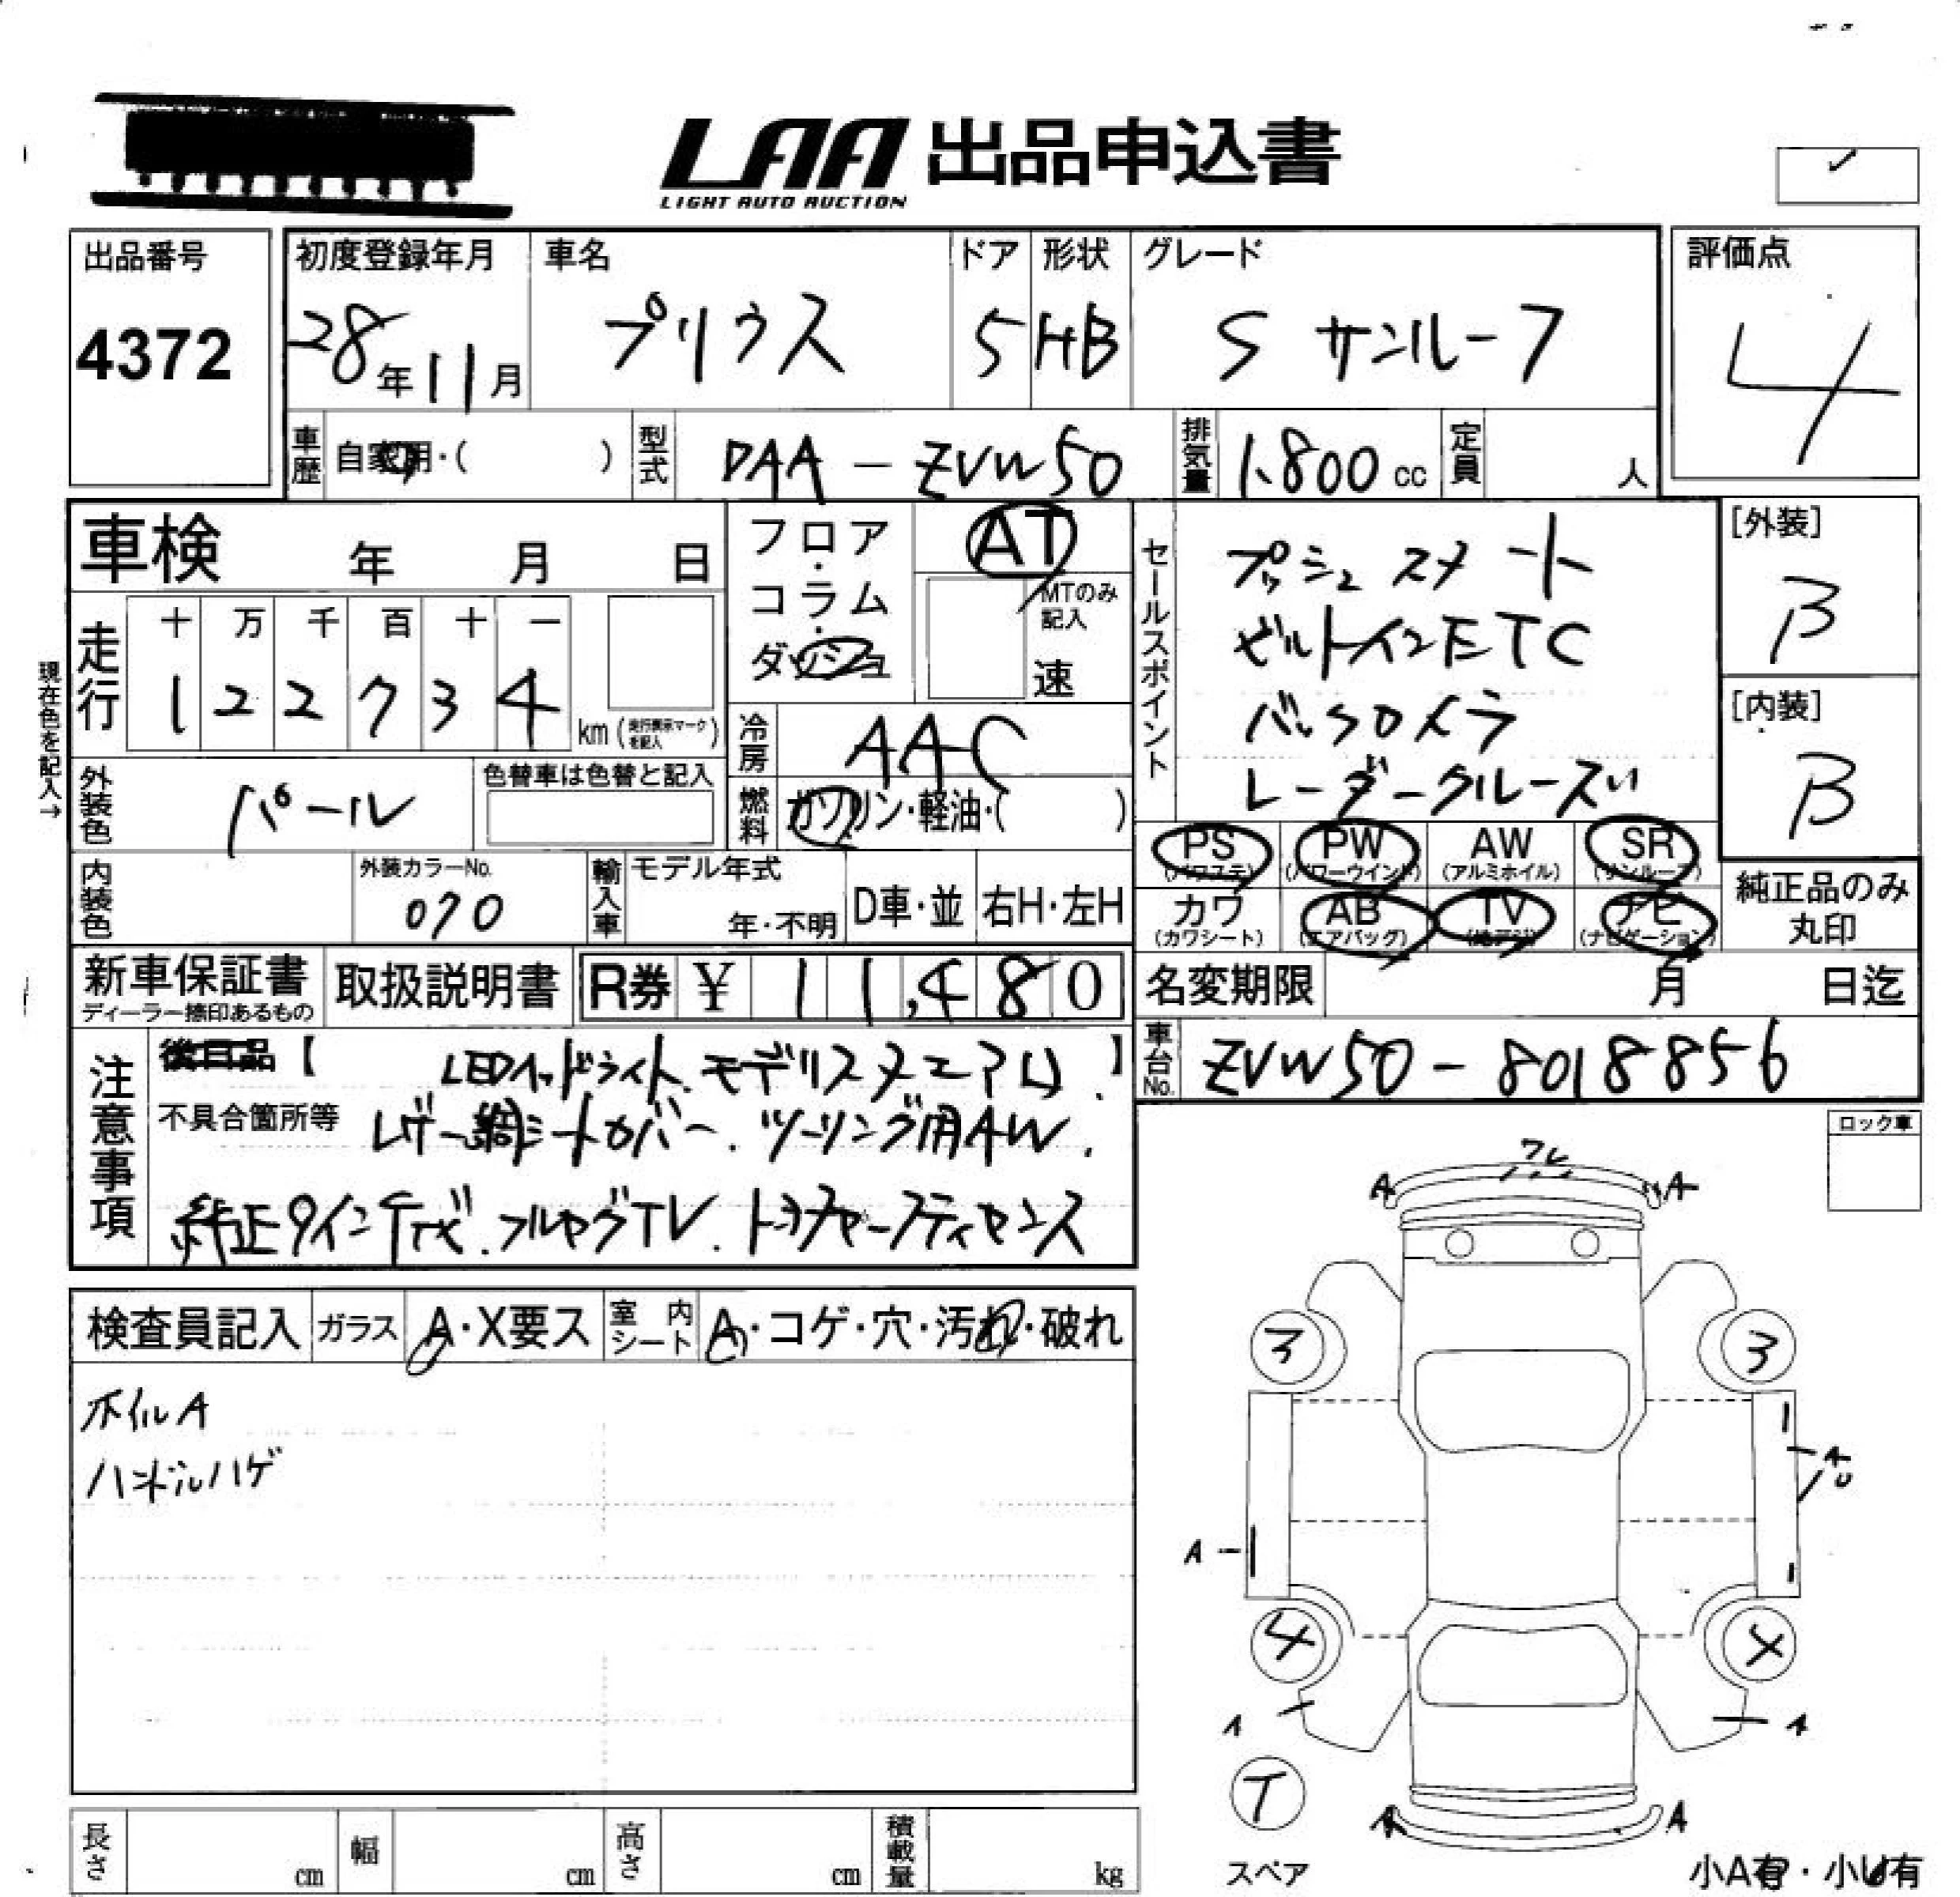 LAA 出品申込書
LIGHT AUTO AUCTION
出品番号
4372
初度登録年月
28年11月
車名
プリウス
ドア
5
形状
HB
グレード
S サンルーフ
評価点
4
車歴 自家用・( )
型式 DAA-ZVW50
排気量 1,800cc
定員 人
車検 年 月 日
フロア・コラム・ダッシュ
AT
MTのみ記入
速
セールスポイント
プッシュスタート
ビルトインETC
バックカメラ
レーダークルーズ
[外装]
B
[内装]
B
現在色を記入→
走行
十 万 千 百 十 一
1 2 2 7 3 4 km(走行表示マークを記入)
冷房 AAC
燃料 ガソリン・軽油・( )
外装色 パール
色替車は色替と記入
内装色
外装カラーNo.
070
輸入車
モデル年式
年・不明
D車・並
右H・左H
PS (パワステ)
PW (パワーウインド)
AW (アルミホイル)
SR (サンルーフ)
カワ (カワシート)
AB (エアバッグ)
TV (地デジ)
ナビ (ナビゲーション)
純正品のみ丸印
新車保証書
ディーラー捺印あるもの
取扱説明書
R券 ¥ 11,480
名変期限 月 日迄
車台No. ZVW50-8018856
注意事項
後日品【 LEDヘッドライト、モデリスタエアロ、】
不具合箇所等 レザー調シートカバー、ツーリング用AW、
純正9インチナビ、フルセグTV、トヨタセーフティセンス
ロック車
検査員記入
ガラス A・X要ス
室内シート A・コゲ・穴・汚れ・破れ
ホイルA
ハンドルハゲ
ワレ
A A
3 3
A
U
A
4 4
A A
T
スペア
A A
小A有・小U有
長さ cm
幅 cm
高さ cm
積載量 kg